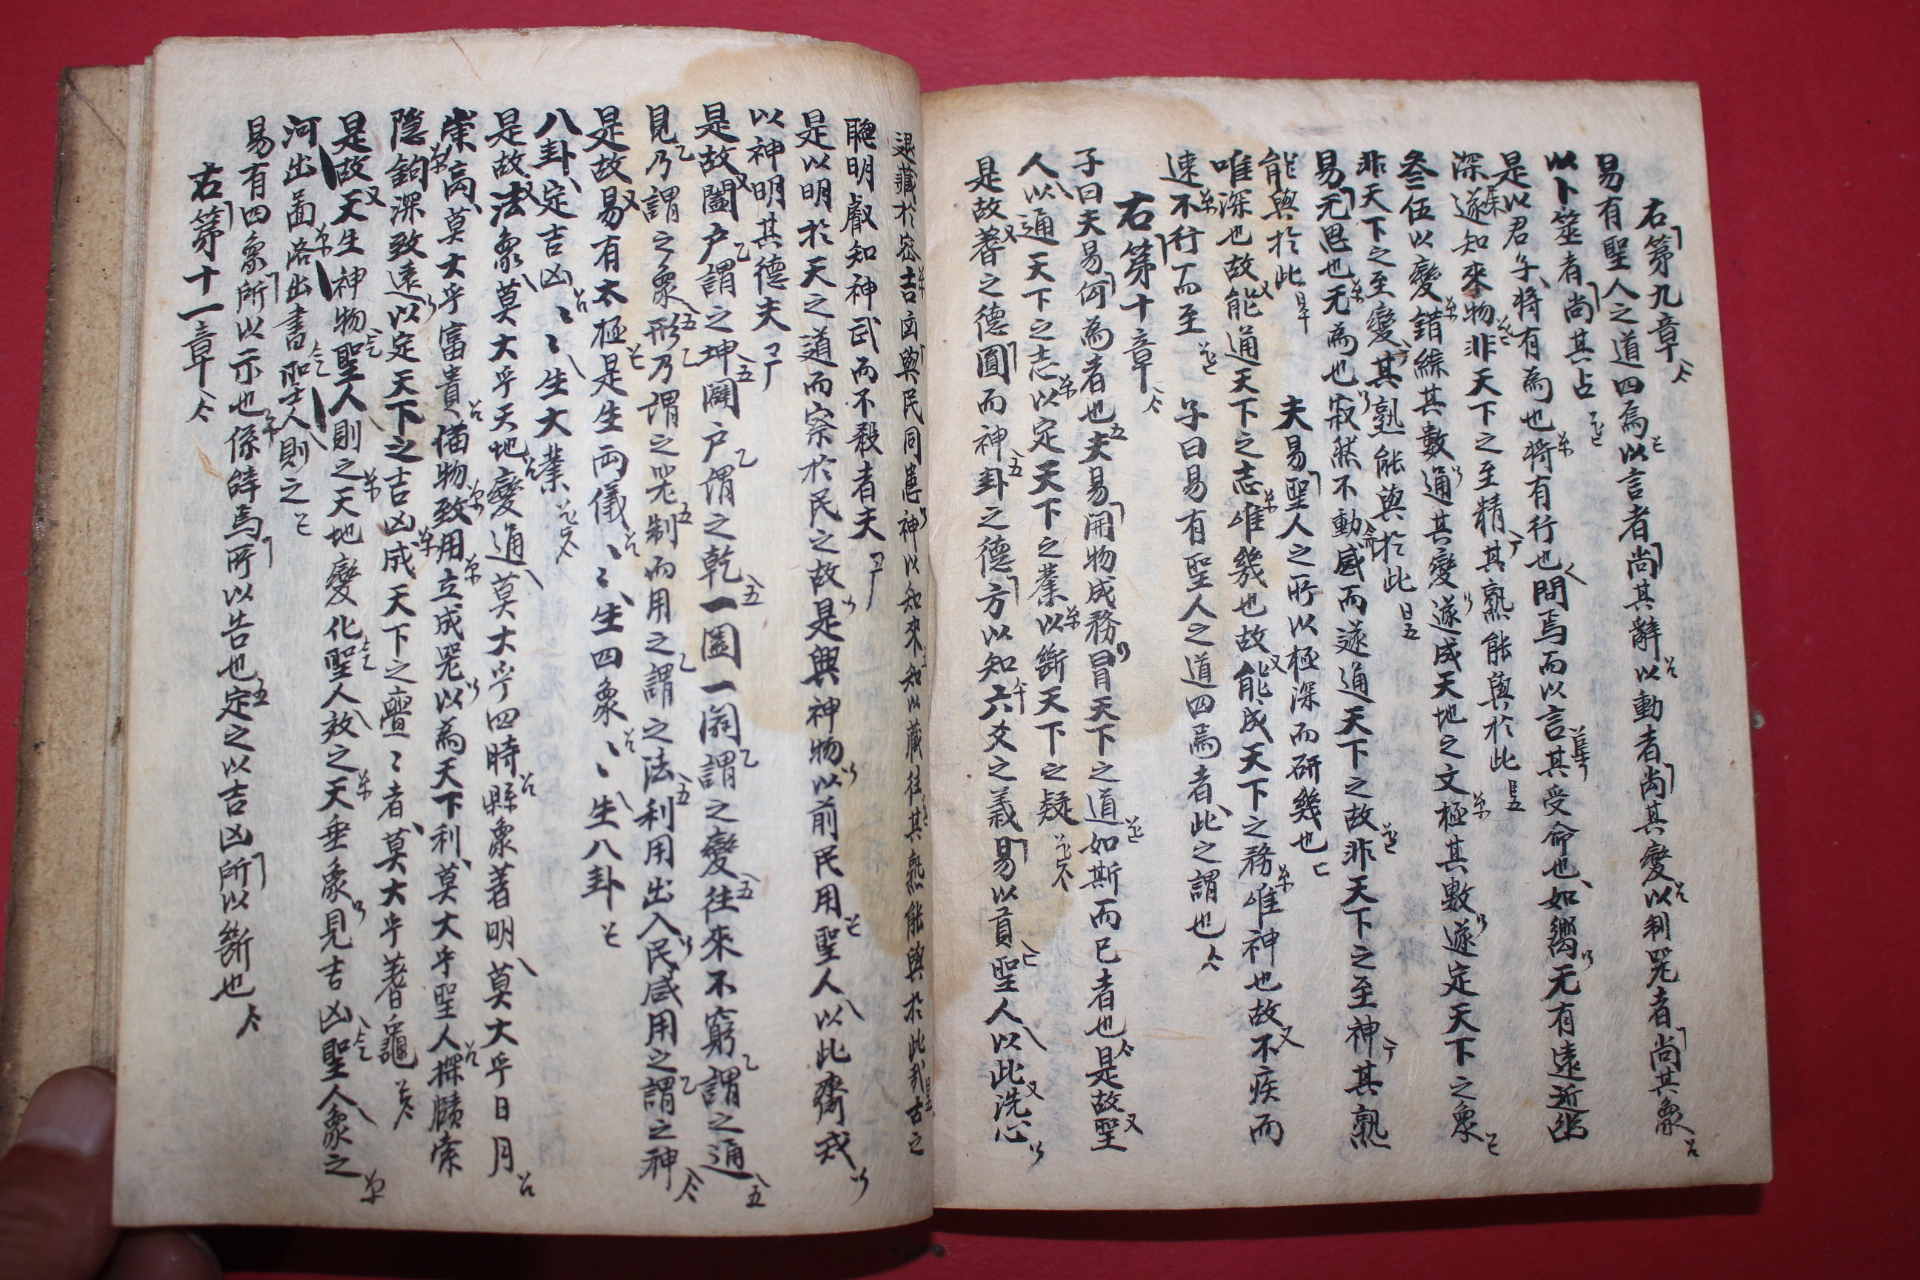 右第九章
易有聖人之道四焉以言者尚其辭以動者尚其變以制器者尚其象
以卜筮者尚其占
是以君子將有為也將有行也問焉而以言其受命也如嚮无有遠近幽
深遂知來物非天下之至精其孰能與於此
參伍以變錯綜其數通其變遂成天地之文極其數遂定天下之象
非天下之至變其孰能與於此
易无思也无為也寂然不動感而遂通天下之故非天下之至神其孰
能與於此 夫易聖人之所以極深而研幾也
唯深也故能通天下之志唯幾也故能成天下之務唯神也故不疾而
速不行而至 子曰易有聖人之道四焉者此之謂也
右第十章
子曰夫易何為者也夫易開物成務冒天下之道如斯而已者也是故聖
人以通天下之志以定天下之業以斷天下之疑
是故蓍之德圓而神卦之德方以知六爻之義易以貢聖人以此洗心
退藏於密吉凶與民同患神以知來知以藏往其孰能與於此哉古之
聰明叡知神武而不殺者夫
是以明於天之道而察於民之故是興神物以前民用聖人以此齊戒
以神明其德夫
是故闔户謂之坤闢户謂之乾一闔一闢謂之變往來不窮謂之通
見乃謂之象形乃謂之器制而用之謂之法利用出入民咸用之謂之神
是故易有太極是生兩儀〻〻生四象〻〻生八卦
八卦定吉凶〻〻生大業
是故法象莫大乎天地變通莫大乎四時縣象著明莫大乎日月
崇高莫大乎富貴備物致用立成器以為天下利莫大乎聖人探賾索
隱鉤深致遠以定天下之吉凶成天下之亹〻者莫大乎蓍龜
是故天生神物聖人則之天地變化聖人效之天垂象見吉凶聖人象之
河出圖洛出書聖人則之
易有四象所以示也係辭焉所以告也定之以吉凶所以斷也
右第十一章